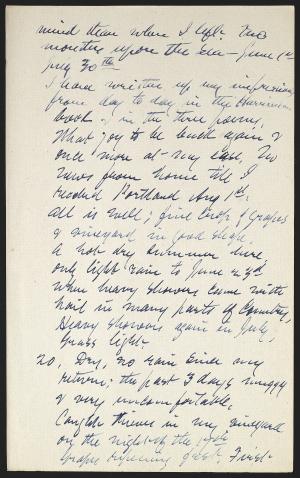 mind than when I left. Two
months upon the sea - June 1st
July 30th
I have written up my impressions
from day to day in the
book & in the three poems,
What joy to be back again &
once more at my ease, No
news from home till I
reached Portland Aug 1st.
all is well; fine crop of grapes
& vineyard in good shape,
A hot dry summer here,
only light rain to June 23d
when heavy showers came with
hail in many parts of country,
Heavy showers again in July,
grass light.
20, Dry, no rain since my
return; the past 3 days muggy
& very uncomfortable,
Caught thieves in my vineyard
on the night of the 18th
Grapes ripening fast. First